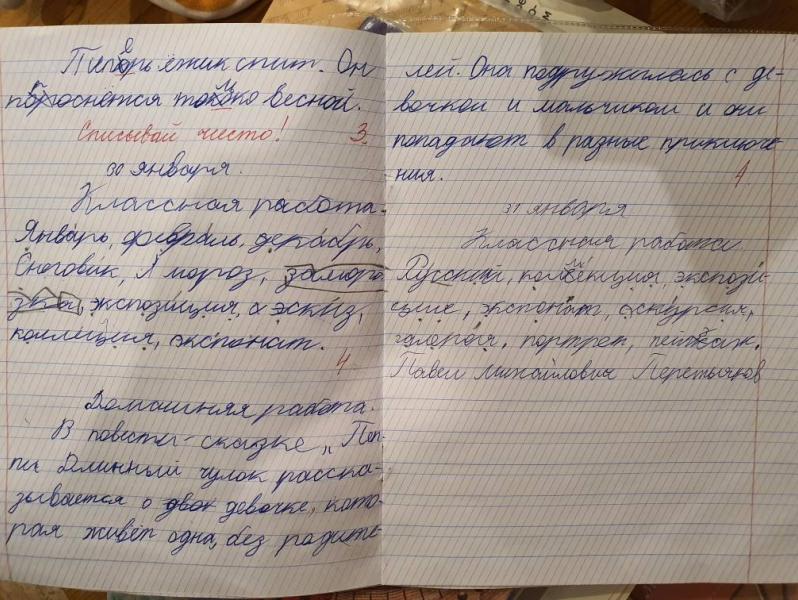 Теперь ёжик спит. Он
только весной.
Списывай чисто! 3
30 января.
Классная работа.
Январь, февраль, декабрь,
Снеговик, мороз, заморо
зка, экспозиция, эскиз,
коллекция, экспонат.
4
Домашняя работа.
В повести-сказке „Пеп-
пи Длинный чулок расска-
зывается о двох девочке, кото-
рая живёт одна, без родите-
лей. Она подружилась с де-
вочкой и мальчиком и они
попадают в разные приключе-
ния. 4
31 января
Классная работа
Русский, коллекция, экспози-
ция, экспонат, экскурсия,
галерея, портрет, пейзаж.
Павел Михайлович